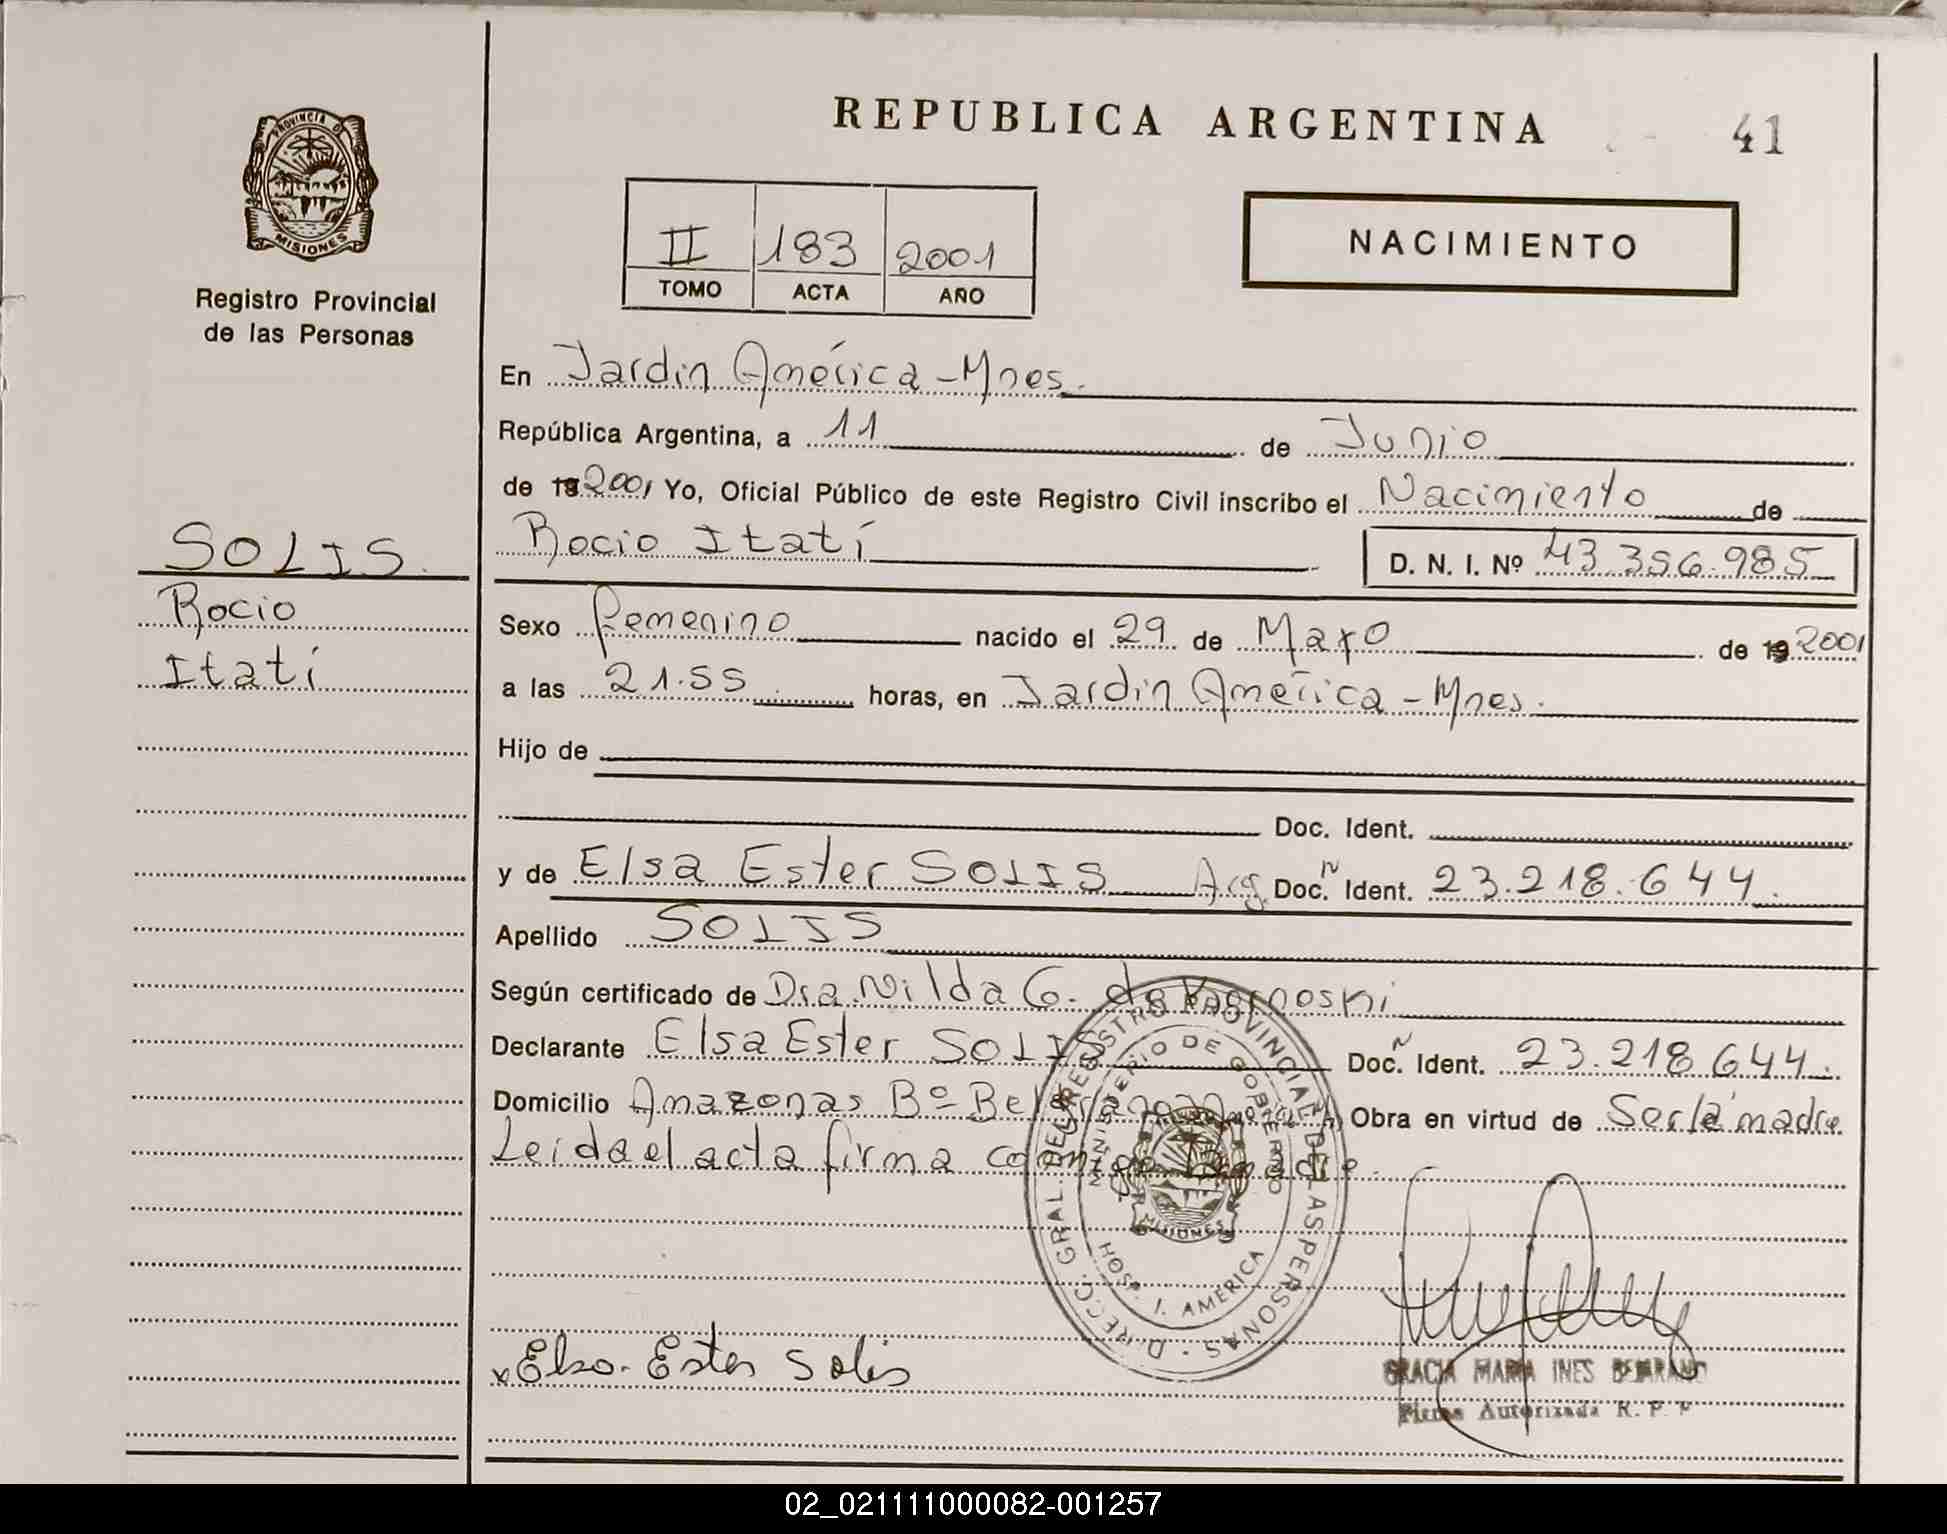 REPUBLICA ARGENTINA
41
PROVINCIA DE
MISIONES
Registro Provincial
de las Personas
II 183 2001
TOMO ACTA AÑO
NACIMIENTO
En Jardin América - Mnes.
República Argentina, a 11 de Junio
de 19 2001 Yo, Oficial Público de este Registro Civil inscribo el Nacimiento de
Rocio Itatí D. N. I. Nº 43.356.985
SOLIS.
Rocio
Itatí
Sexo Femenino nacido el 29 de Mayo de 19 2001
a las 21.55 horas, en Jardin América - Mnes.
Hijo de
Doc. Ident.
y de Elsa Ester SOLIS Arg. Doc. N Ident. 23.218.644.
Apellido SOLIS
Según certificado de Dra. Nilda G. de
Declarante Elsa Ester SOLIS Doc. N Ident. 23.218.644.
Domicilio Amazonas Bº Belgrano Obra en virtud de Ser la madre
Leida el acta firma conmigo la madre.
DIRECC. GRAL. DEL REGISTRO PROVINCIAL DE LAS PERSONAS
MINISTERIO DE GOBIERNO
MISIONES
HOSP. J. AMERICA
x Elsa Ester Solis
GRACIA MARIA INES BEJARANO
Firma Autorizada R. P. P
02_021111000082-001257